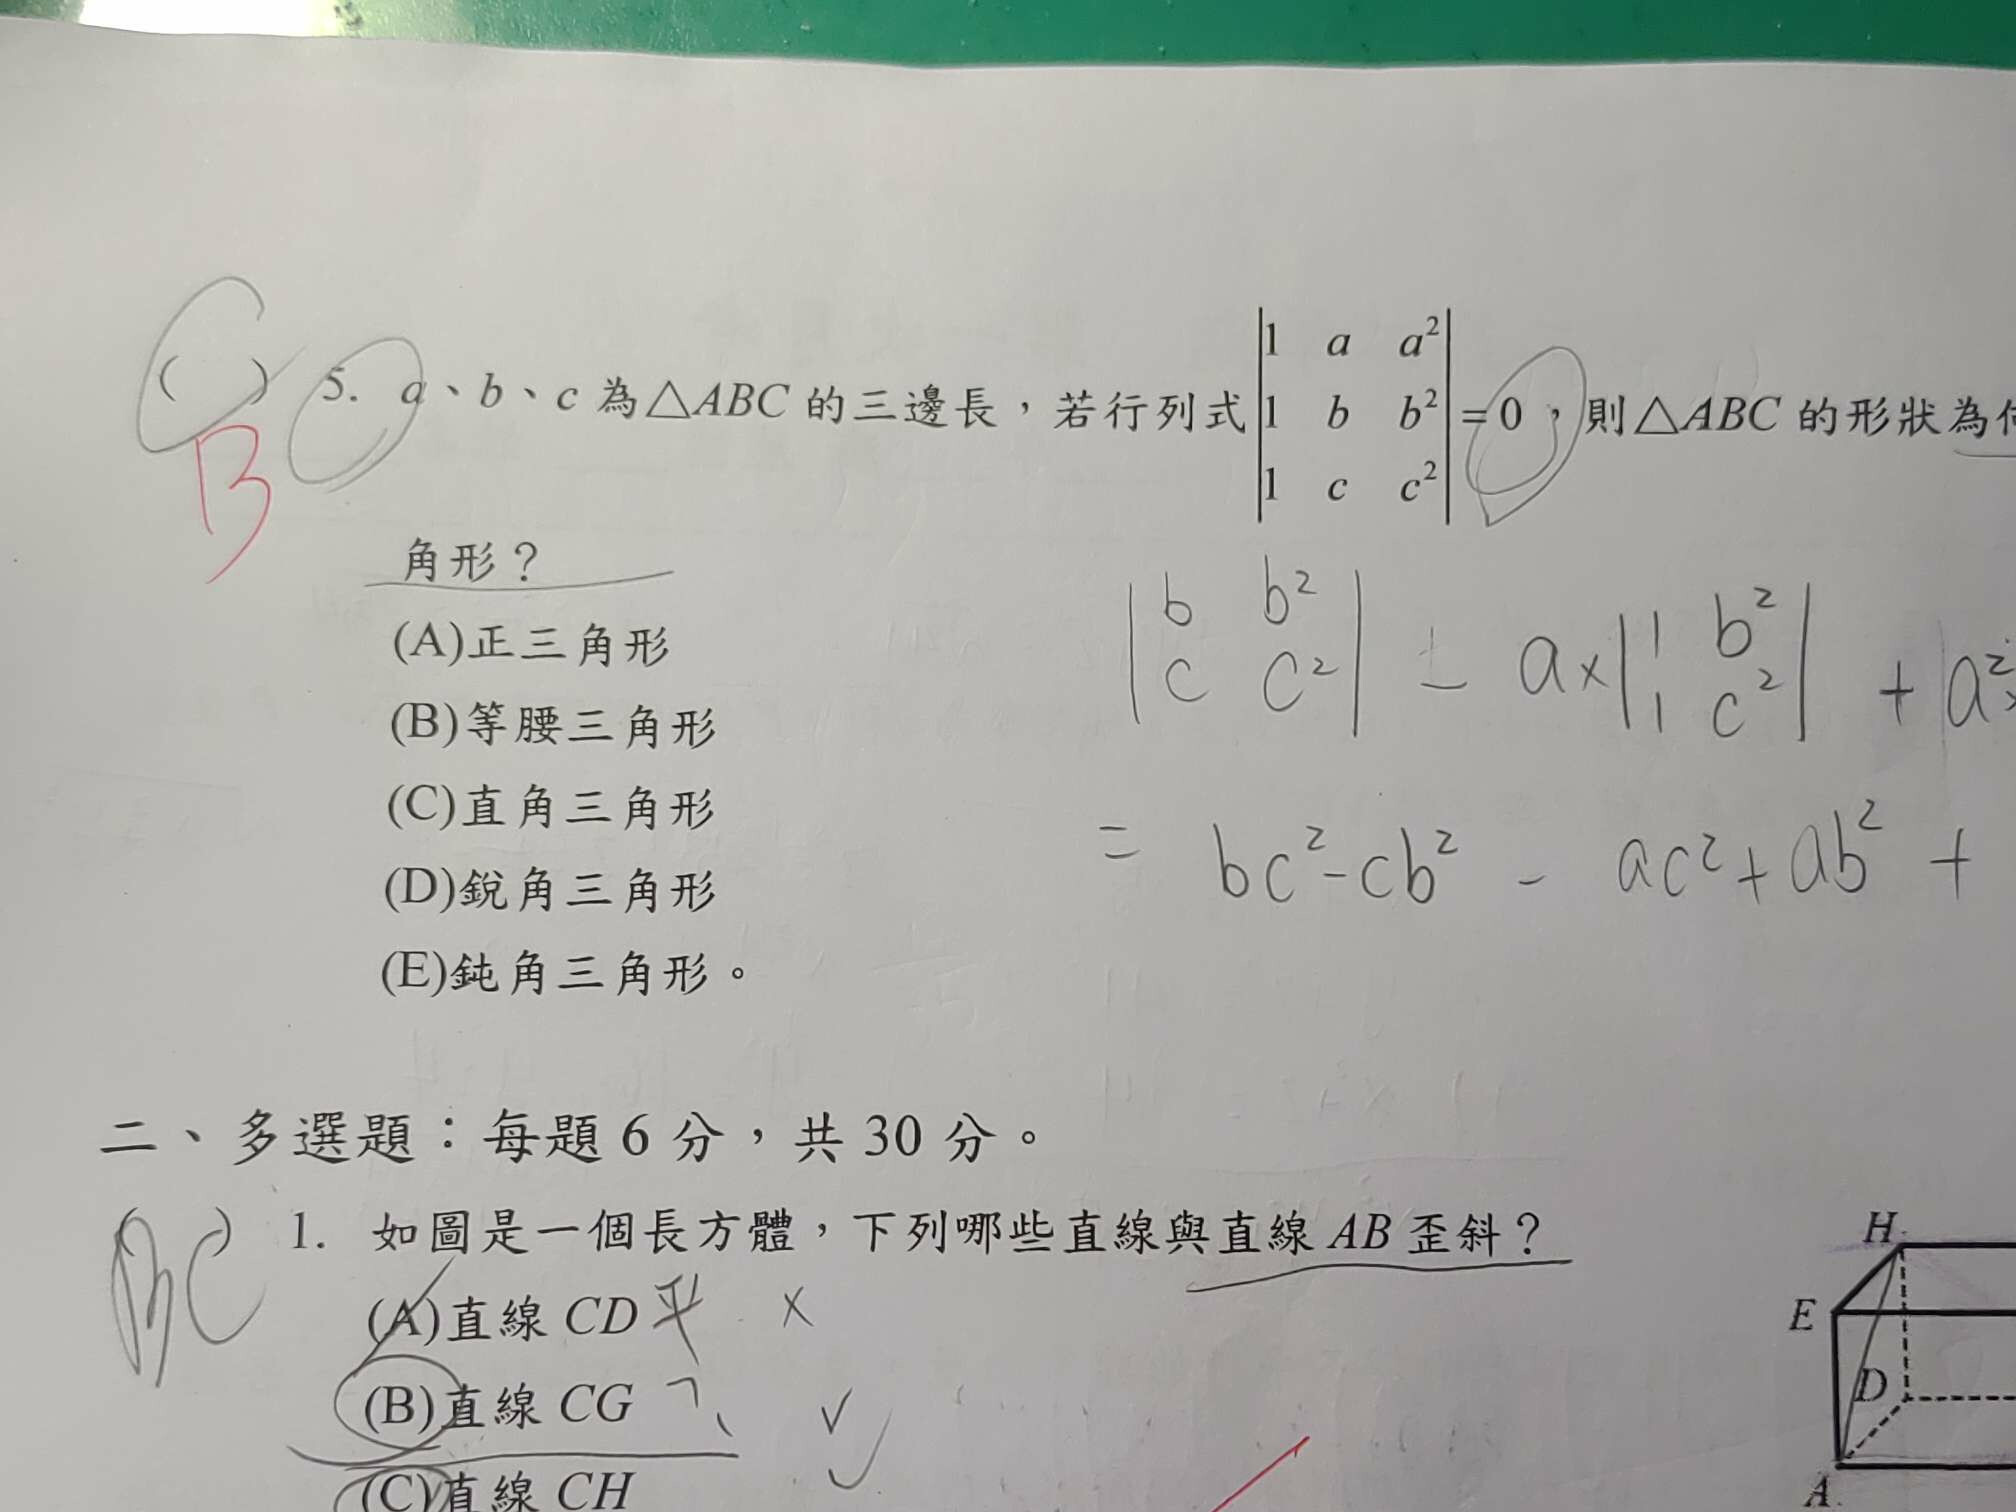 C
( ) 5. a、b、c 為△ABC 的三邊長，若行列式 |1 a a²| = 0，則△ABC 的形狀為何
|1 b b²|
|1 c c²|
B
角形？
(A)正三角形
(B)等腰三角形
(C)直角三角形
(D)銳角三角形
(E)鈍角三角形。
|b b²| − a×|1 b²| + a²×
|c c²| |1 c²|
= bc²-cb² - ac²+ab² +
二、多選題：每題 6 分，共 30 分。
BC
( ) 1. 如圖是一個長方體，下列哪些直線與直線 AB 歪斜？
(A)直線 CD 平 ×
(B)直線 CG ✓
(C)直線 CH
H
E
D
A